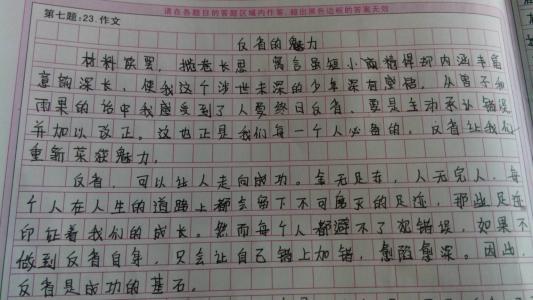 请在各题目的答题区域内作答,超出黑色边框的答案无效
第七题:23.作文
反省的魅力
材料欣罢,揽卷长思,寓言虽短小精悍却内涵丰富
意韵深长,使我这个涉世未深的少年深有感悟。从曾子和
雨果的话中我感受到了人要终日反省,更是主动承认错误
并加以改正。这也正是我们每一个人必备的,反省让我们
重新荣获魅力。
反省,可以让人走向成功。金无足赤,人无完人,每
个人在人生的道路上都会留下不可磨灭的足迹,那些足迹
印证着我们的成长。然而每个人都避不了犯错误,如果不
做到反省自身,只会让自己错上加错,愈陷愈深。因此,
反省是成功的基石。